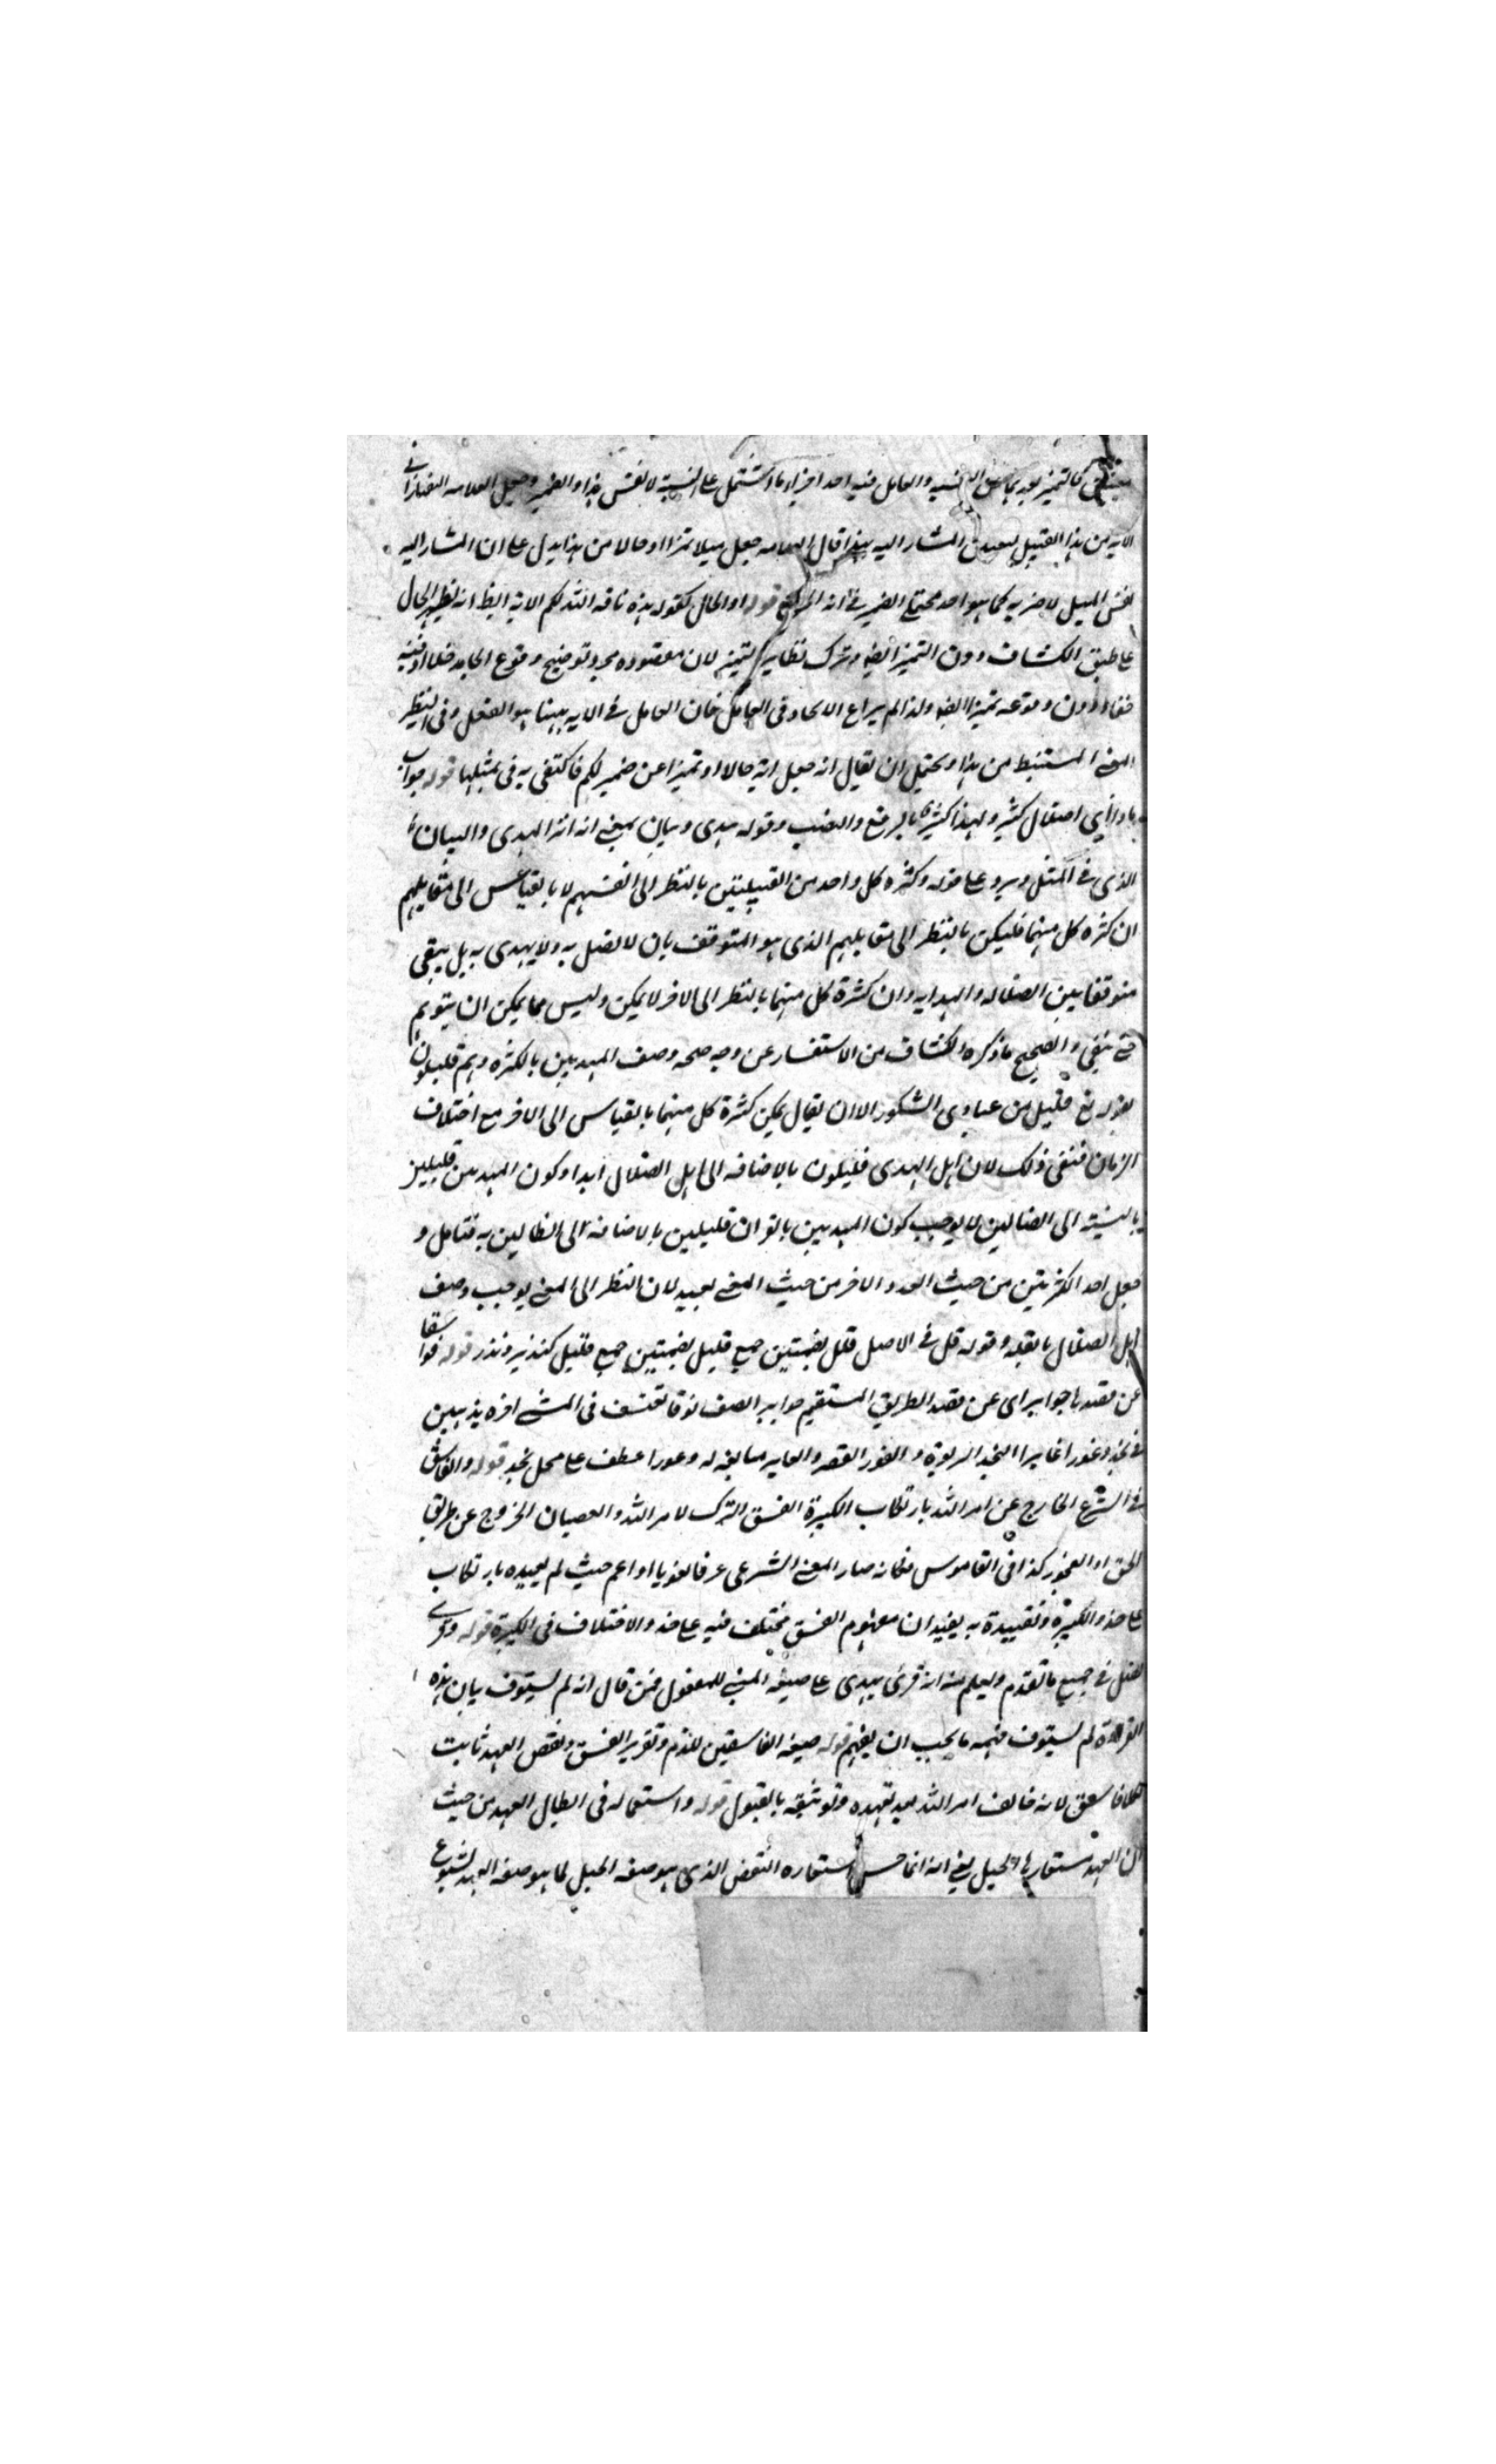 كالتميز بعد والعامل فيه احد اجزاء ما اشتمل على النسبة لا نفس هذا والضمير وجعل العلامه التفتازانى
الايه من هذا القبيل المشار اليه بهذا قال العلامه جعل مثلا تمييزا او حالا من هذا يدل على ان المشار اليه
نفس المثل لا ضربه كما هو احد محتملى الضمير فى انه الحق قوله او الحال كقوله هذه ناقه الله لكم الايه ايضا انه نظير الحال
على طبق الكشاف دون التميز ايضا وترك نظاير التميز لان مقصوده مجرد توضيح وقوع الجامد حالا
دون وقوعه تميزا ايضا ولذا لم يراع الاتحاد فى العامل فان العامل فى الايه هو الفعل وفى النظير
المعنى المستنبط من هذا ويحتمل ان يقال انه جعل ايه حالا او تميزا عن ضمير لكم فاكتفى به فى تمثيلها قوله جواب
ماذا اى اضلال كثير بالرفع والنصب وقوله هدى وبيان بمعنى انه اثر الهدى والبيان
الذى فى المثل ويرد على قوله وكثره كل واحد من القبيلتين بالنظر الى انفسهم لا بالقياس الى مقابليهم
ان كثره كل منهما فليكن بالنظر الى مقابليهم الذى هو المتوقف بان لا يضل به ولا يهدى به بل يبقى
متوقفا بين الضلاله والهدايه وان كثرة كل منهما بالنظر الى الاخر لا يمكن وليس مما يمكن ان يتوهم
حتى ينفى والصحيح ما ذكره الكشاف من الاستفسار عن وجه صحه وصف المهديين بالكثره وهم قليلون
لقوله تع قليل من عبادى الشكور الا ان يقال يمكن كثرة كل منهما بالقياس الى الاخر مع اختلاف
الازمان فنفى ذلك لان اهل الهدى قليلون بالاضافه الى اهل الضلال ابدا وكون المهديين قليلين
بالنسبة الى الضالين لا يوجب كون المهديين بالقران قليلين بالاضافه الى الضالين به فتامل و
جعل احد الكثرتين من حيث العدد والاخر من حيث المعنى بعيد لان النظر الى المعنى يوجب وصف
اهل الضلال بالقله وقوله قل فى الاصل قلل بضمتين جمع قليل بضمتين جمع قليل كنذير ونذر قوله فواسقا
عن قصدها جوايرا اى عن قصد الطريق المستقيم جواير الصف نوقا تعتسف فى المشى اخره يذهبن
فى نجد وغورا غايرا النجد الربوة والغور القعر والغاير مبالغه له وغورا عطف على محل نجد قوله والفاسق
فى الشرع الخارج عن امر الله بارتكاب الكبيرة الفسق الترك لامر الله والعصيان الخروج عن طريق
الحق او الفجور كذا فى القاموس فكانه صار المعنى الشرعى عرفا لغويا او اعم حيث لم يقيده بارتكاب
على هذا الكبيرة وتقييده به يفيد ان مفهوم الفسق مختلف فيه على هذا الاختلاف فى الكبيرة قوله
يضل فى جميع ما تقدم ويعلم منه انه قرئ يهدى على صيغه المبنى للمفعول فمن قال انه لم يستوف بيان هذه
القراءة لم يستوف فهمه ما يجب ان يفهم قوله صيغه الفاسقين للذم وتقرير الفسق ونقض العهد ثابت
لكل فاسق لانه خالف امر الله بعد تعهده وتوثيقه بالقبول قوله واستعماله فى ابطال العهد من حيث
ان العهد مستعار له الحبل يعنى انه انما حسن استعاره النقض الذى هو صفه الحبل لما هو صفه العهد لشيوع